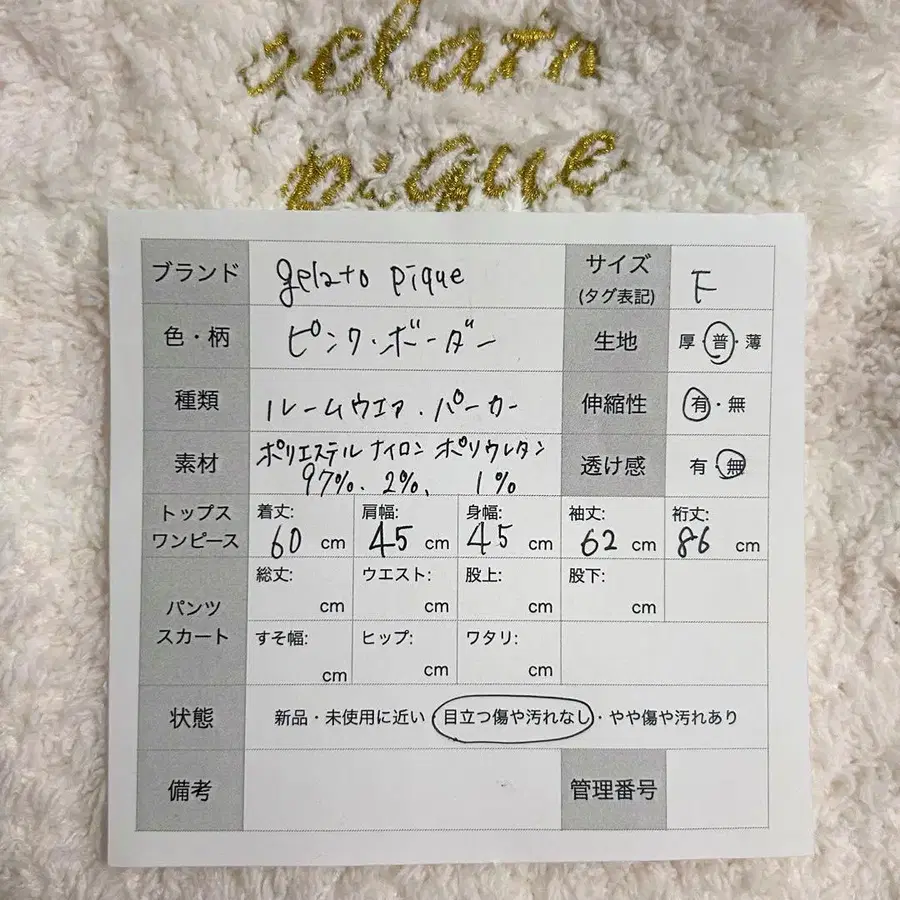 gelato
pique
ブランド gelato pique サイズ (タグ表記) F
色・柄 ピンク・ボーダー 生地 厚・普・薄
種類 ルームウエア・パーカー 伸縮性 有・無
素材 ポリエステル ナイロン ポリウレタン 透け感 有・無
97%. 2%, 1%
トップス 着丈: 肩幅: 身幅: 袖丈: 裄丈:
ワンピース 60 cm 45 cm 45 cm 62 cm 86 cm
総丈: ウエスト: 股上: 股下:
cm cm cm cm
パンツ
スカート すそ幅: ヒップ: ワタリ:
cm cm cm
状態 新品・未使用に近い・目立つ傷や汚れなし・やや傷や汚れあり
備考 管理番号